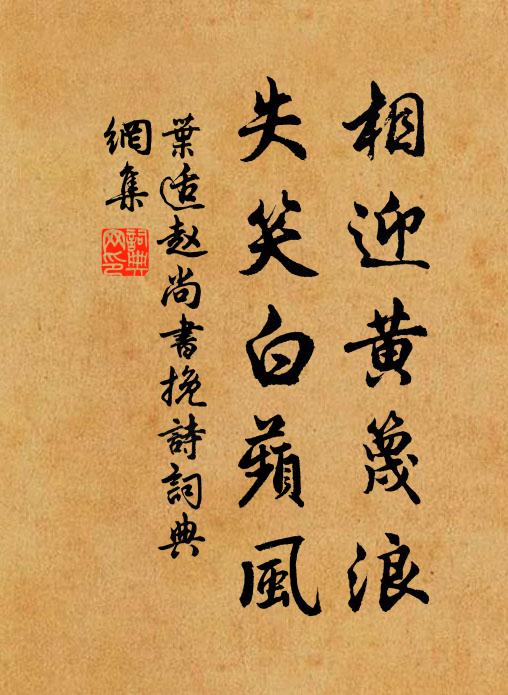 相迎黄篾浪
失笑白蘋風
葉适赵尚書挽詩詞典
網集
詞典